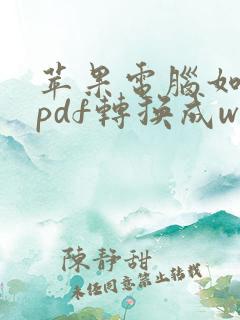 苹果電腦如
pdf轉換成w
陳靜甜
未经同意禁止转载